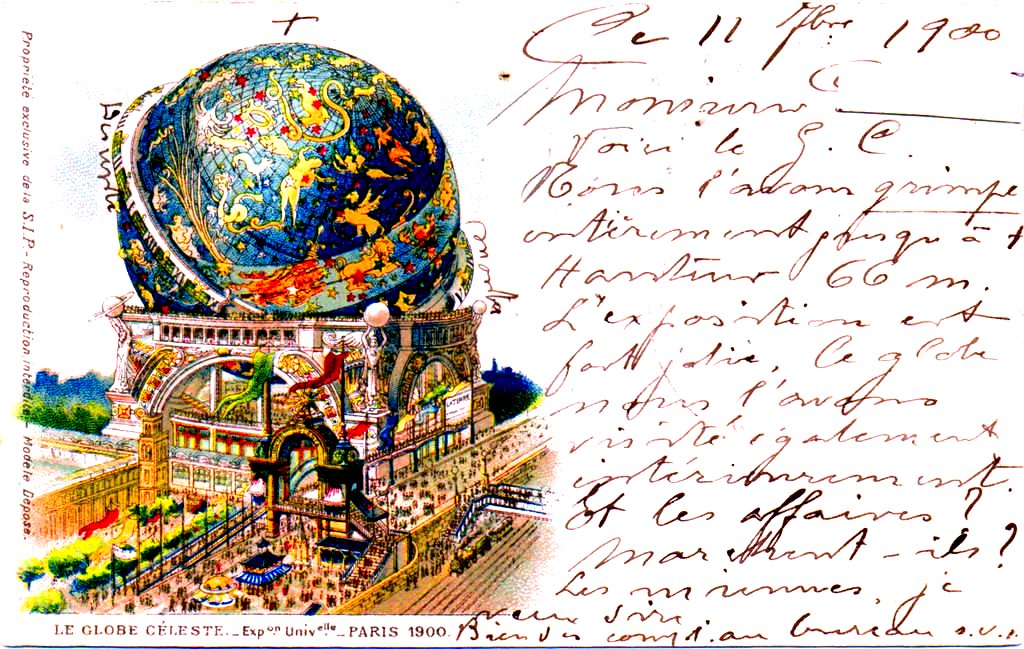 Propriété exclusive de la S.I.P. - Reproduction interdite - Modèle Déposé.
+
LE GLOBE CÉLESTE. _ Expᵒⁿ Univᵉˡˡᵉ _ PARIS 1900.
Ce 11 7bre 1900
Monsieur C
Voici le G. C.
Nous l'avons grimpé
entièrement jusqu'à +
Hauteur 60 m.
L'exposition est
fort jolie, le globe
nous l'avons
visité également
intérieurement.
Et les affaires ?
Marchent-ils ?
Les miennes, je
veux dire
Bien des compl. au bureau s.v.